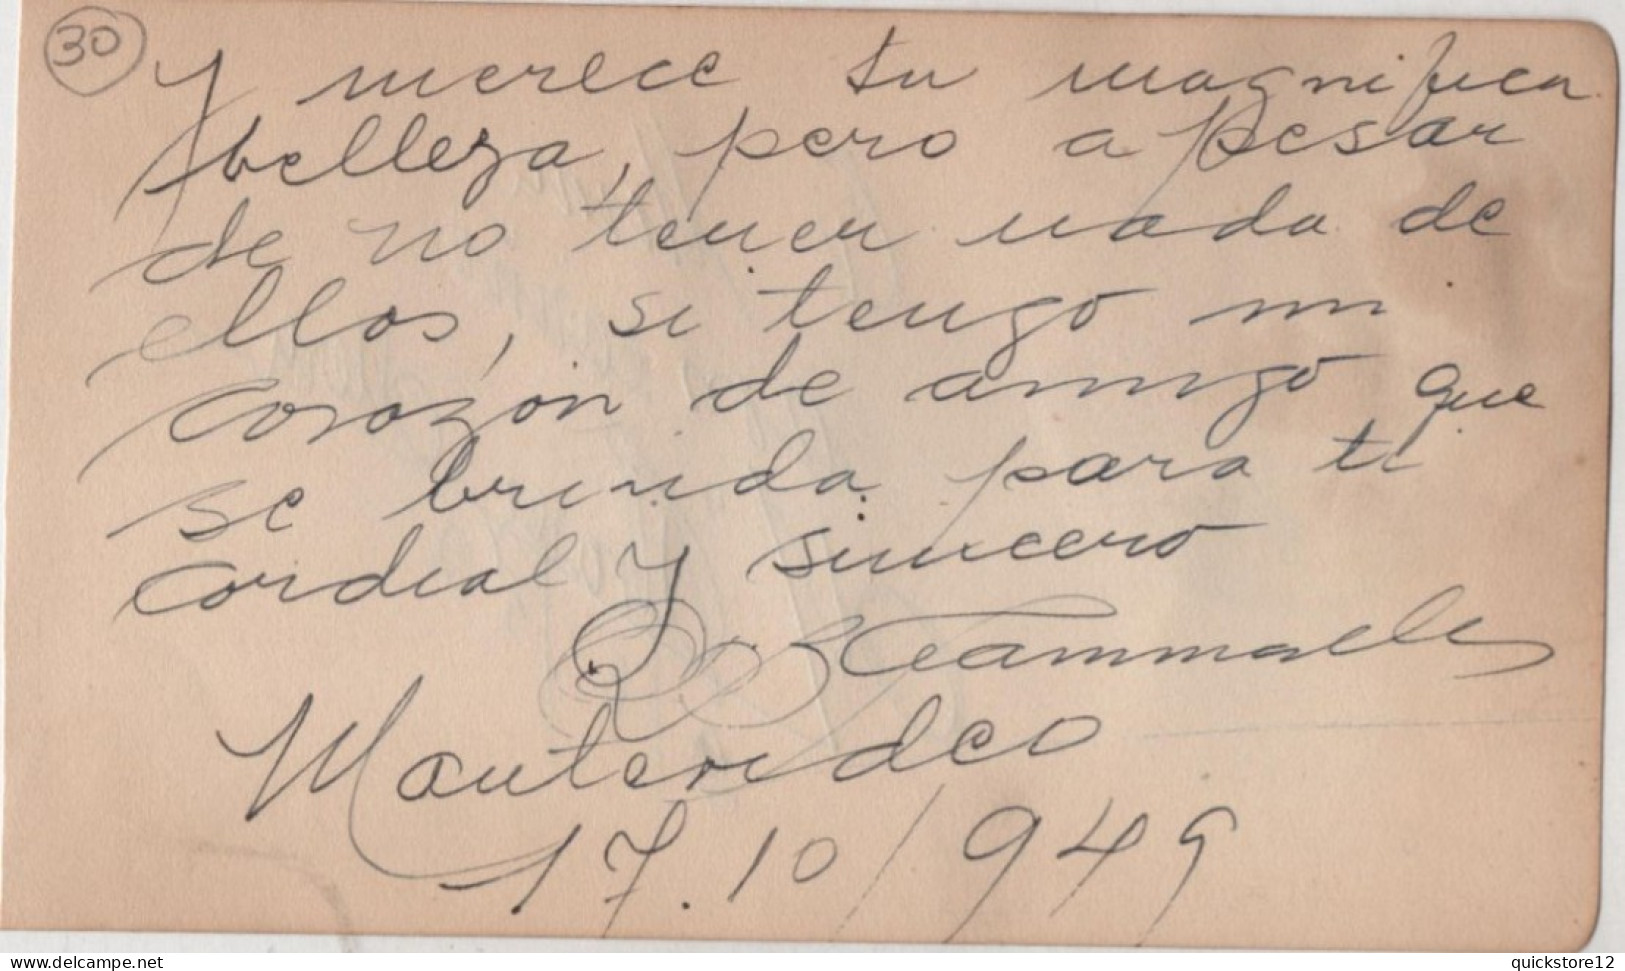 30
Y merece tu magnifica
belleza, pero a pesar
de no tener nada de
ellos, si tengo un
corazón de amigo que
se brinda para ti
cordial y sincero
Montevideo
17.10/949
www.delcampe.net
quickstore12